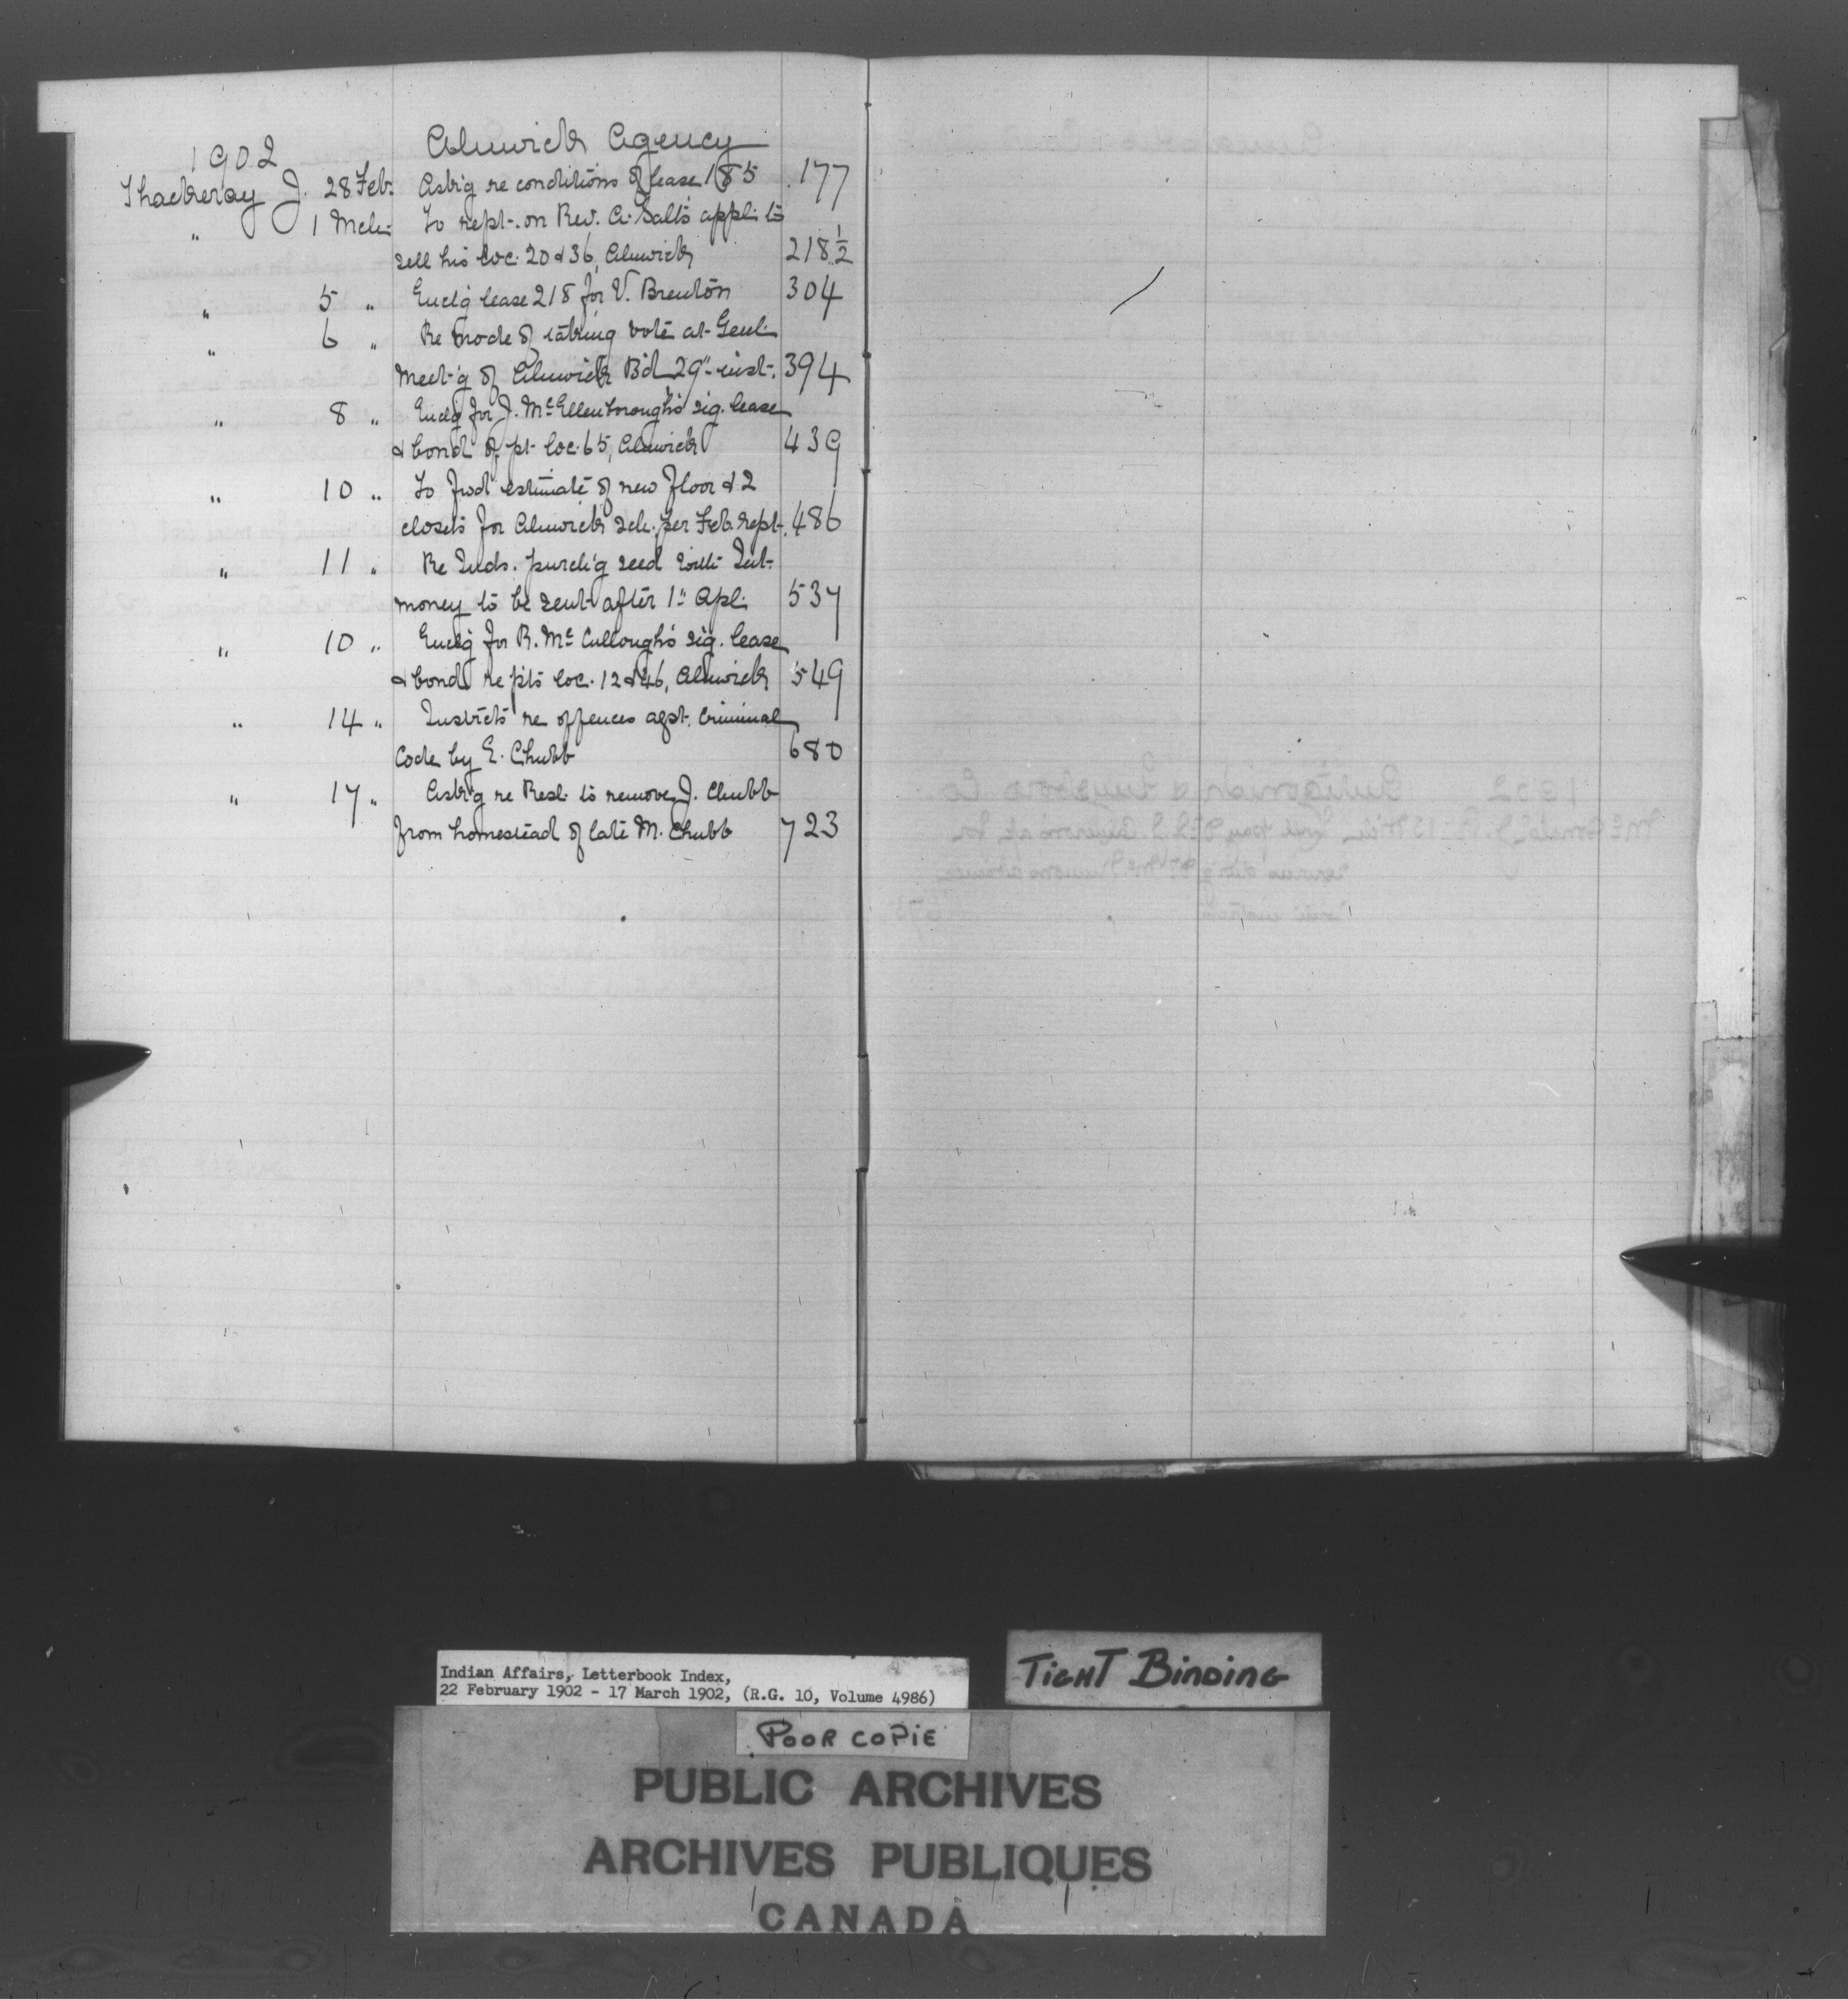 1902 Alnwick Agency
Thackeray J. 28 Feb. Ask'g re conditions of lease 185 177
" 1 Mch. To rept. on Rev. A. Salt's appl. to
sell his loc. 20 & 36, Alnwick 218½
" 5 " Encl'g lease 218 for V. Brenton 304
" 6 " Re mode of taking vote at Genl.
Meet'g of Alnwick B'd 29" inst. 394
" 8 " Encl'g for J. McEllenborough's sig. lease
& bond of pt. loc. 65, Alnwick 439
" 10 " To fwd estimate of new floor & 2
closets for Alnwick sch. per Feb. rept. 486
" 11 " Re Inds. purch'g seed with Int.
money to be sent after 1" Apl. 537
" 10 " Encl'g for R. McCullough's sig. lease
& bond re pts loc. 12 & 46, Alnwick 549
" 14 " Instrcts re offences agst. Criminal
Code by E. Chubb 680
" 17 " Ask'g re Resl. to remove J. Chubb
from homestead of late M. Chubb 723
Indian Affairs, Letterbook Index,
22 February 1902 - 17 March 1902, (R.G. 10, Volume 4986)
TIGHT BINDING
POOR COPIE
PUBLIC ARCHIVES
ARCHIVES PUBLIQUES
CANADA